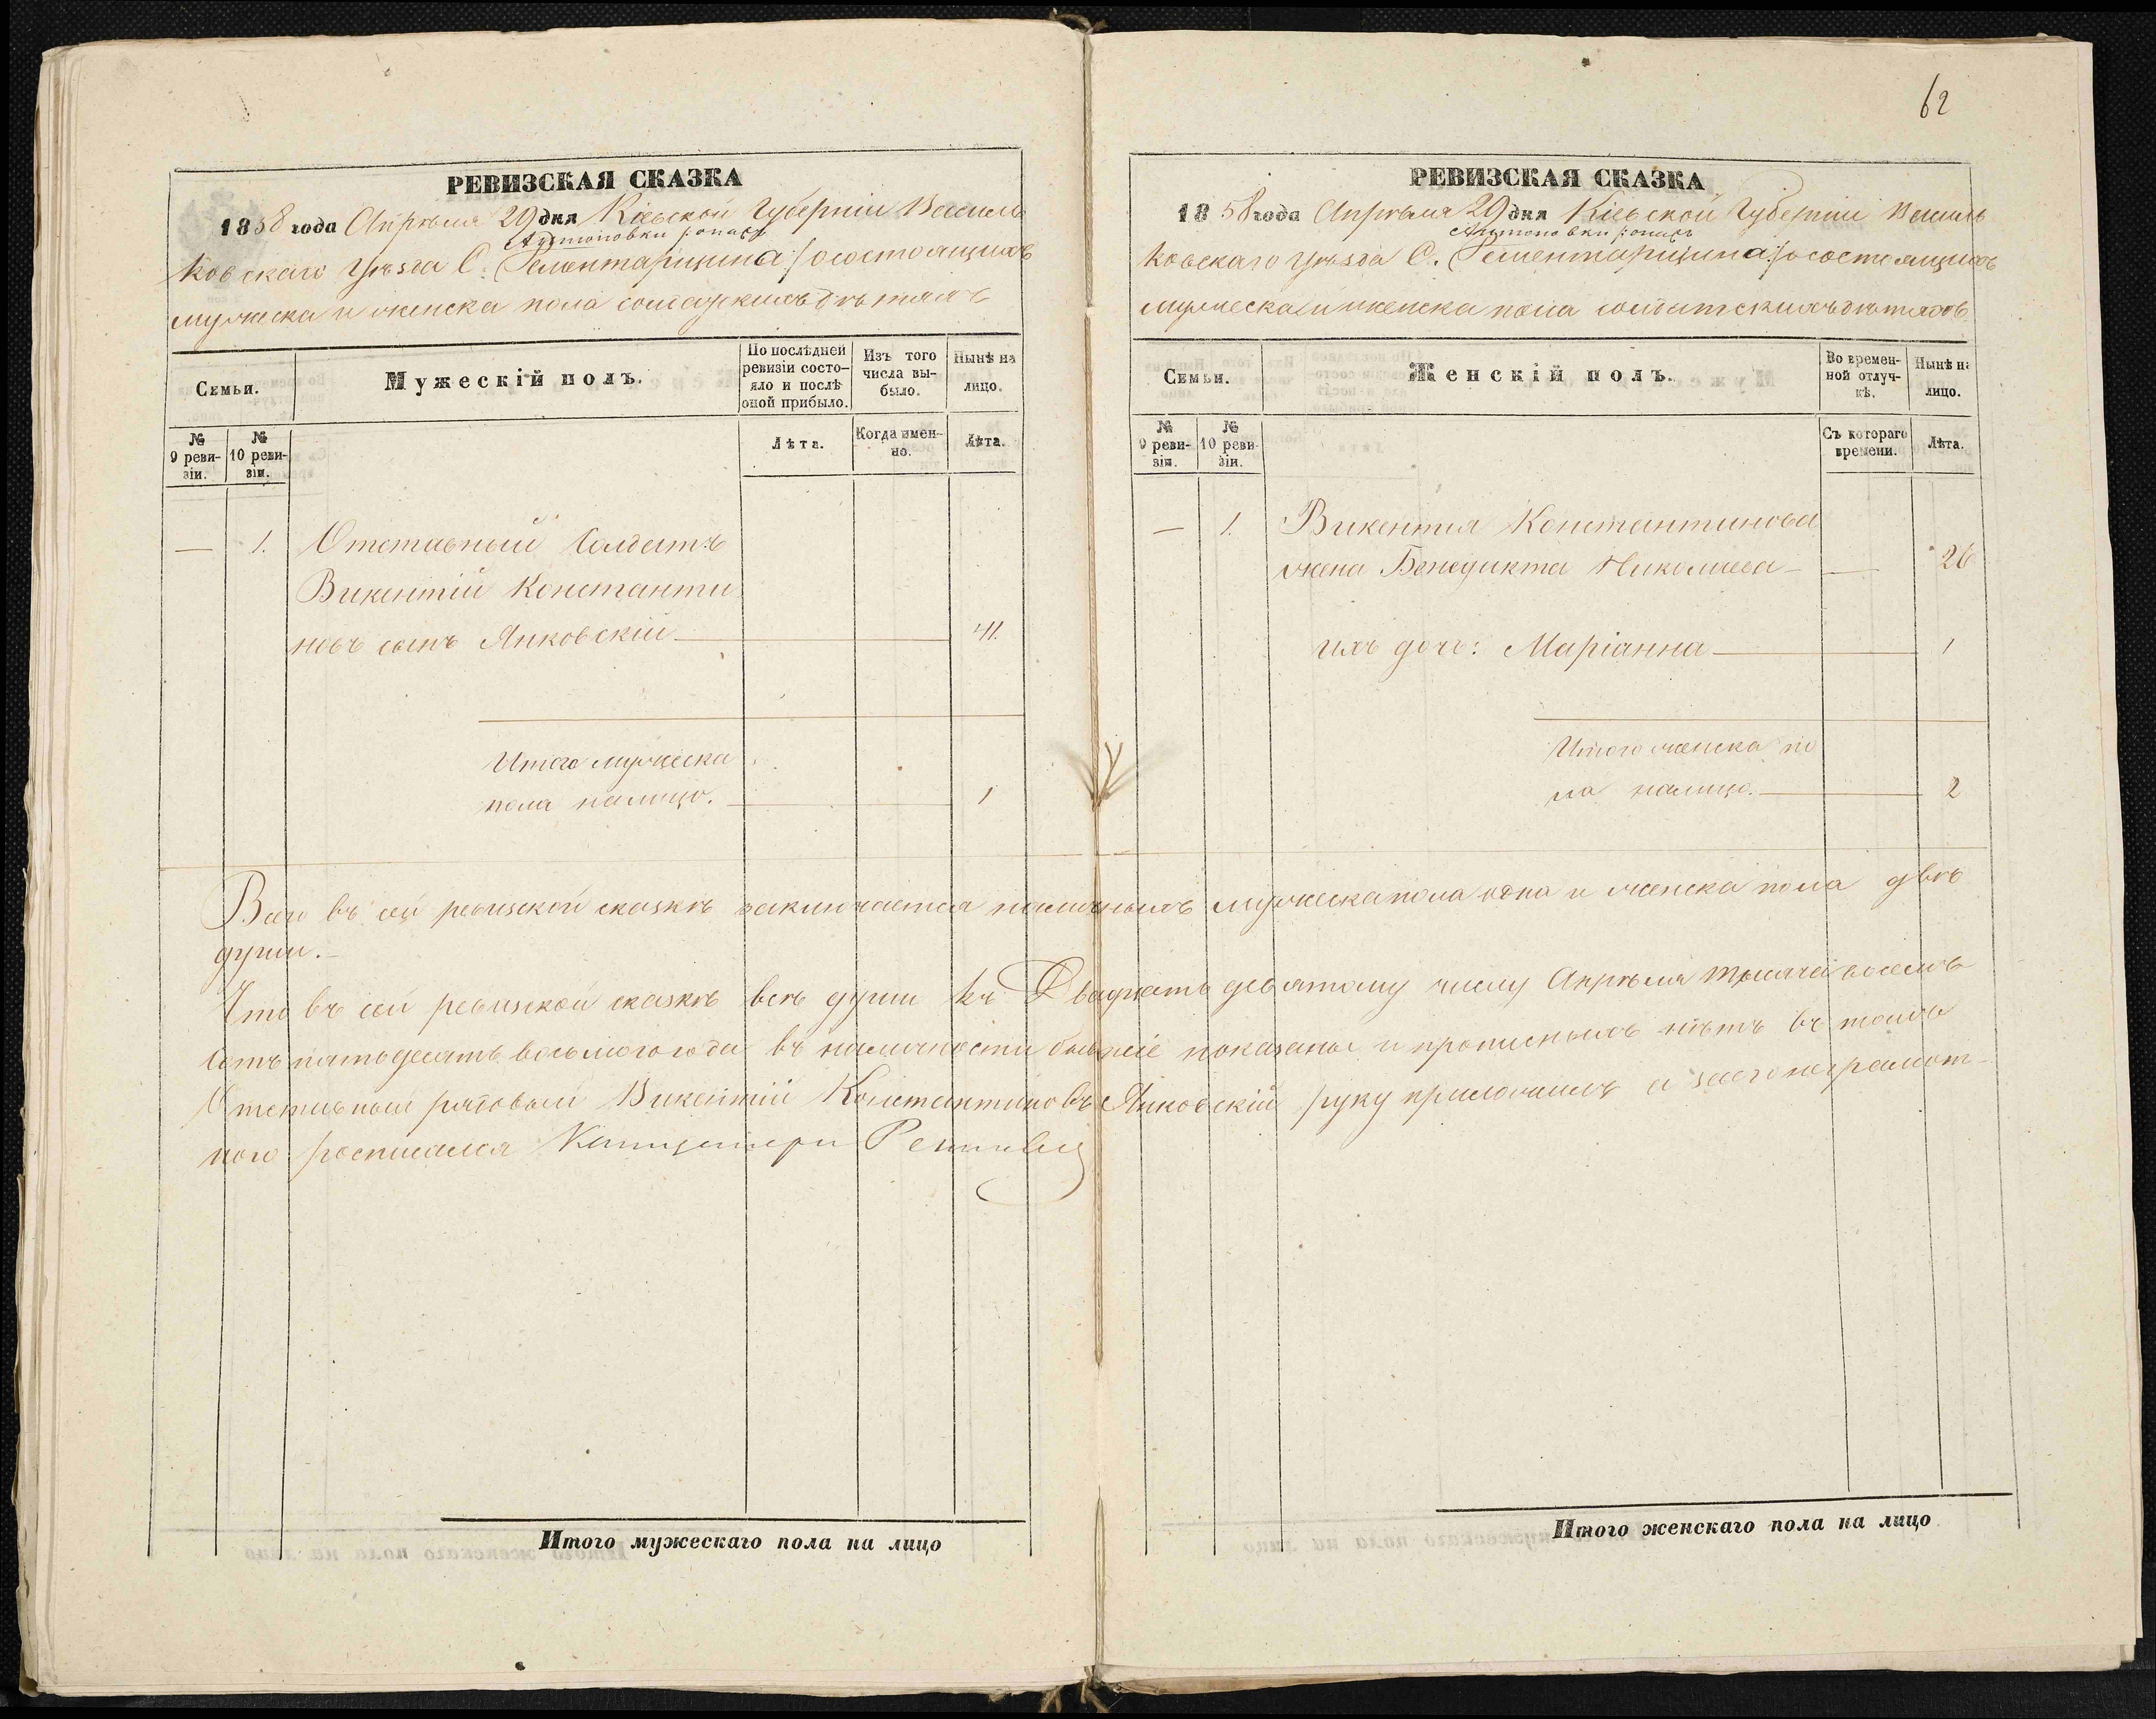 62
РЕВИЗСКАЯ СКАЗКА
1858 года Апрѣля 29 дня Кіевской Губерніи Василь
Антоновки
ковскаго Уѣзда С. Рементарщина о состоящихъ
мужеска и женска пола солдатскихъ дѣтяхъ
Семьи.
Мужескій полъ.
По послѣдней ревизіи состо-
яло и послѣ оной прибыло.
Изъ того числа вы-
было.
Нынѣ на лицо.
№ 9 реви-
зіи.
№ 10 реви-
зіи.
Лѣта.
Когда имен-
но.
Лѣта.
— 1. Отставный Солдатъ
Викентій Константи
новъ сынъ Янковскій — 41.
Итого мужеска
пола налицо. — 1
РЕВИЗСКАЯ СКАЗКА
1858 года Апрѣля 29 дня Кіевской Губерніи Василь
Антоновки
ковскаго Уѣзда С. Рементарщина о состоящихъ
мужеска и женска пола солдатскихъ дѣтяхъ
Семьи.
Женскій полъ.
Во времен-
ной отлуч-
кѣ.
Нынѣ на лицо.
№ 9 реви-
зіи.
№ 10 реви-
зіи.
Съ котораго времени.
Лѣта.
— 1. Викентія Константинова
жена Бенедикта Николаева — 26
ихъ дочь: Маріанна — 1
Итого женска по
ла налицо. — 2
Всего въ сей ревизской сказкѣ заключается наличныхъ мужеска пола одна и женска пола двѣ
души.—
Что въ сей ревизской сказкѣ всѣ души къ Двадцать девятому числу Апрѣля тысяча восемь
сотъ пятьдесятъ восьмого года въ наличности бывшіе показаны и прописныхъ нѣтъ въ томъ
Отставный рядовый Викентій Константиновъ Янковскій руку приложилъ а за его неграмот-
ного росписался
Итого мужескаго пола на лицо
Итого женскаго пола на лицо